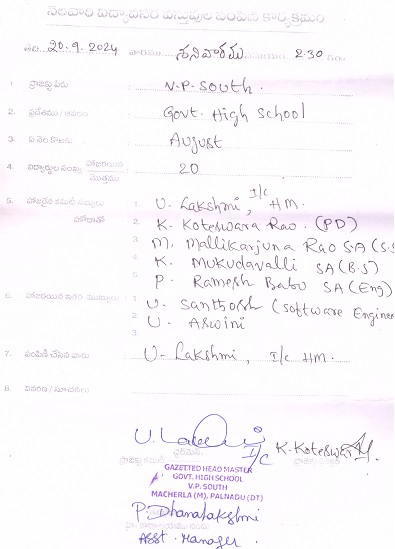 నెలవారి విద్యావసర వస్తువుల పంపిణి కార్యక్రమం
తేది 20.9.2024 వారము శనివారము సమయం 2.30 గం.
1. ప్రాజెక్టు పేరు N.P. South.
2. ప్రదేశము / Govt. High School
3. ఏ నెల కొరకు August
4. విద్యార్థుల సంఖ్య హాజరయిన 20
మొత్తము
5. హాజరైన కమిటీ సభ్యులు 1. U. Lakshmi, I/c HM.
హోదాతో 2. K. Koteswara Rao. (PD)
3. M. Mallikarjuna Rao S.A (S.S
4. K. Mukudavalli SA (B.S)
5. P. Ramesh Babu SA (Eng)
6. హాజరయిన ఇతర ముఖ్యులు 1. U. Santhosh (Software Engineer
2. U. Aswini
3.
7. పంపిణి చేసిన వారు U. Lakshmi, I/c HM.
8. వివరణ / సూచనలు
U. I/c K. Koteswar
ప్రాజెక్టు కమిటీ ఛైర్మెన్
GAZETTED HEAD MASTER
GOVT. HIGH SCHOOL
V.P. SOUTH
MACHERLA (M), PALNADU (DT)
P. Dhanalakshmi
Asst. Manager.